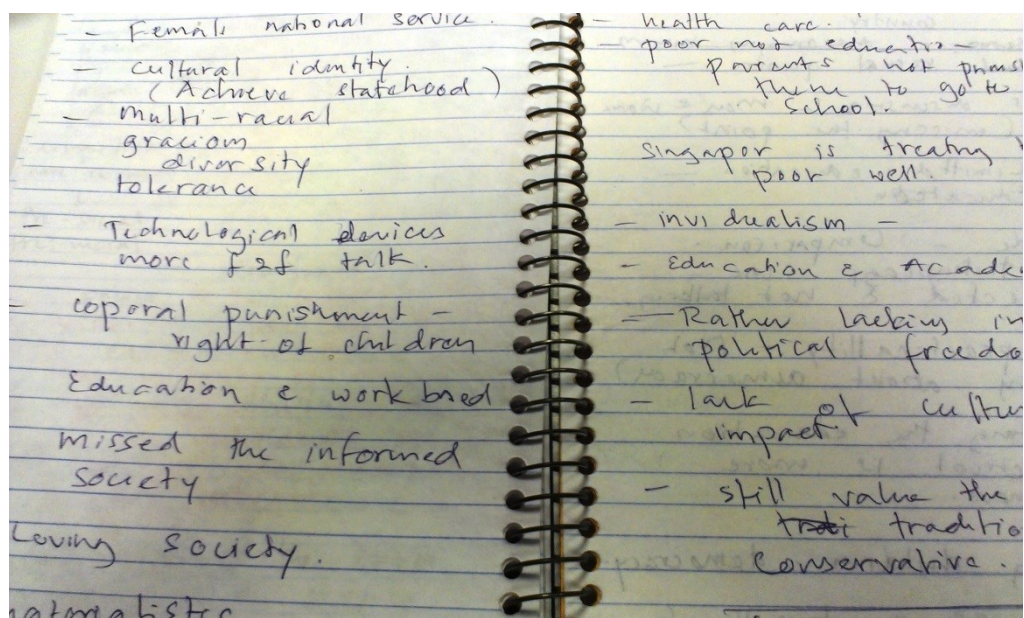 - Female national service.
- cultural identity.
(Achieve statehood)
- multi-racial
graciom
diversity
toleranc
- Technological devices
more f2f talk.
- coporal punishment -
right of children
Education & work bred
missed the informed
society
Loving society.
materialistic
- health care.
- poor not educatio -
parents not
them to go to
school.
Singapor is treating
poor well
- invidualism -
- Education & Acade
- Rather lacking in
political freedo
- lack of cultur
impact
- still value the
traditio
Conservative.